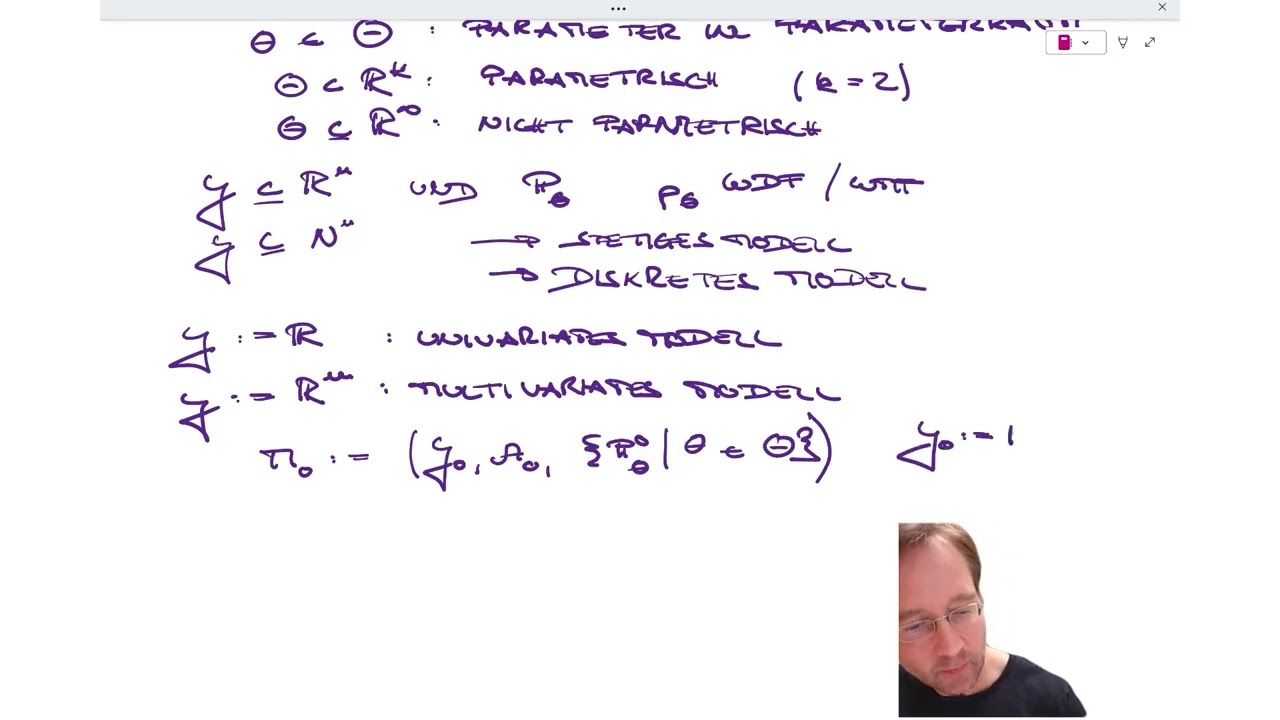 θ ∈ Θ : PARAMETER IN PARAMETERRAUM
Θ ⊂ ℝᵏ : PARAMETRISCH (k = 2)
Θ ⊆ ℝ^∞ : NICHT PARAMETRISCH
𝒴 ⊆ ℝⁿ UND ℙ_θ p_θ WDF / WMF
𝒴 ⊆ ℕⁿ → STETIGES MODELL
→ DISKRETES MODELL
𝒴 := ℝ : UNIVARIATES MODELL
𝒴 := ℝᵐ : MULTIVARIATES MODELL
M₀ := (𝒴₀, 𝒜₀, {ℙ⁰_θ | θ ∈ Θ}) 𝒴₀ := |